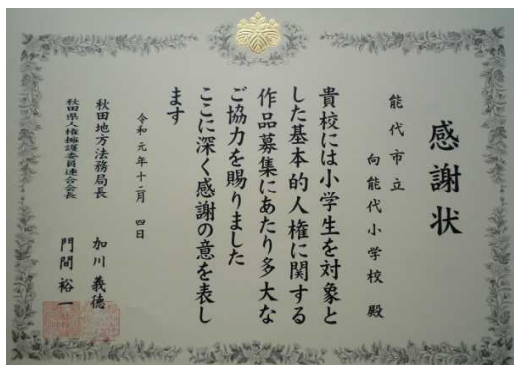 感謝状
能代市立
向能代小学校 殿
貴校には小学生を対象と
した基本的人権に関する
作品募集にあたり多大な
ご協力を賜りました
ここに深く感謝の意を表し
ます
令和元年十二月 四日
秋田地方法務局長 加川義徳
秋田県人権擁護委員連合会長 門間裕一